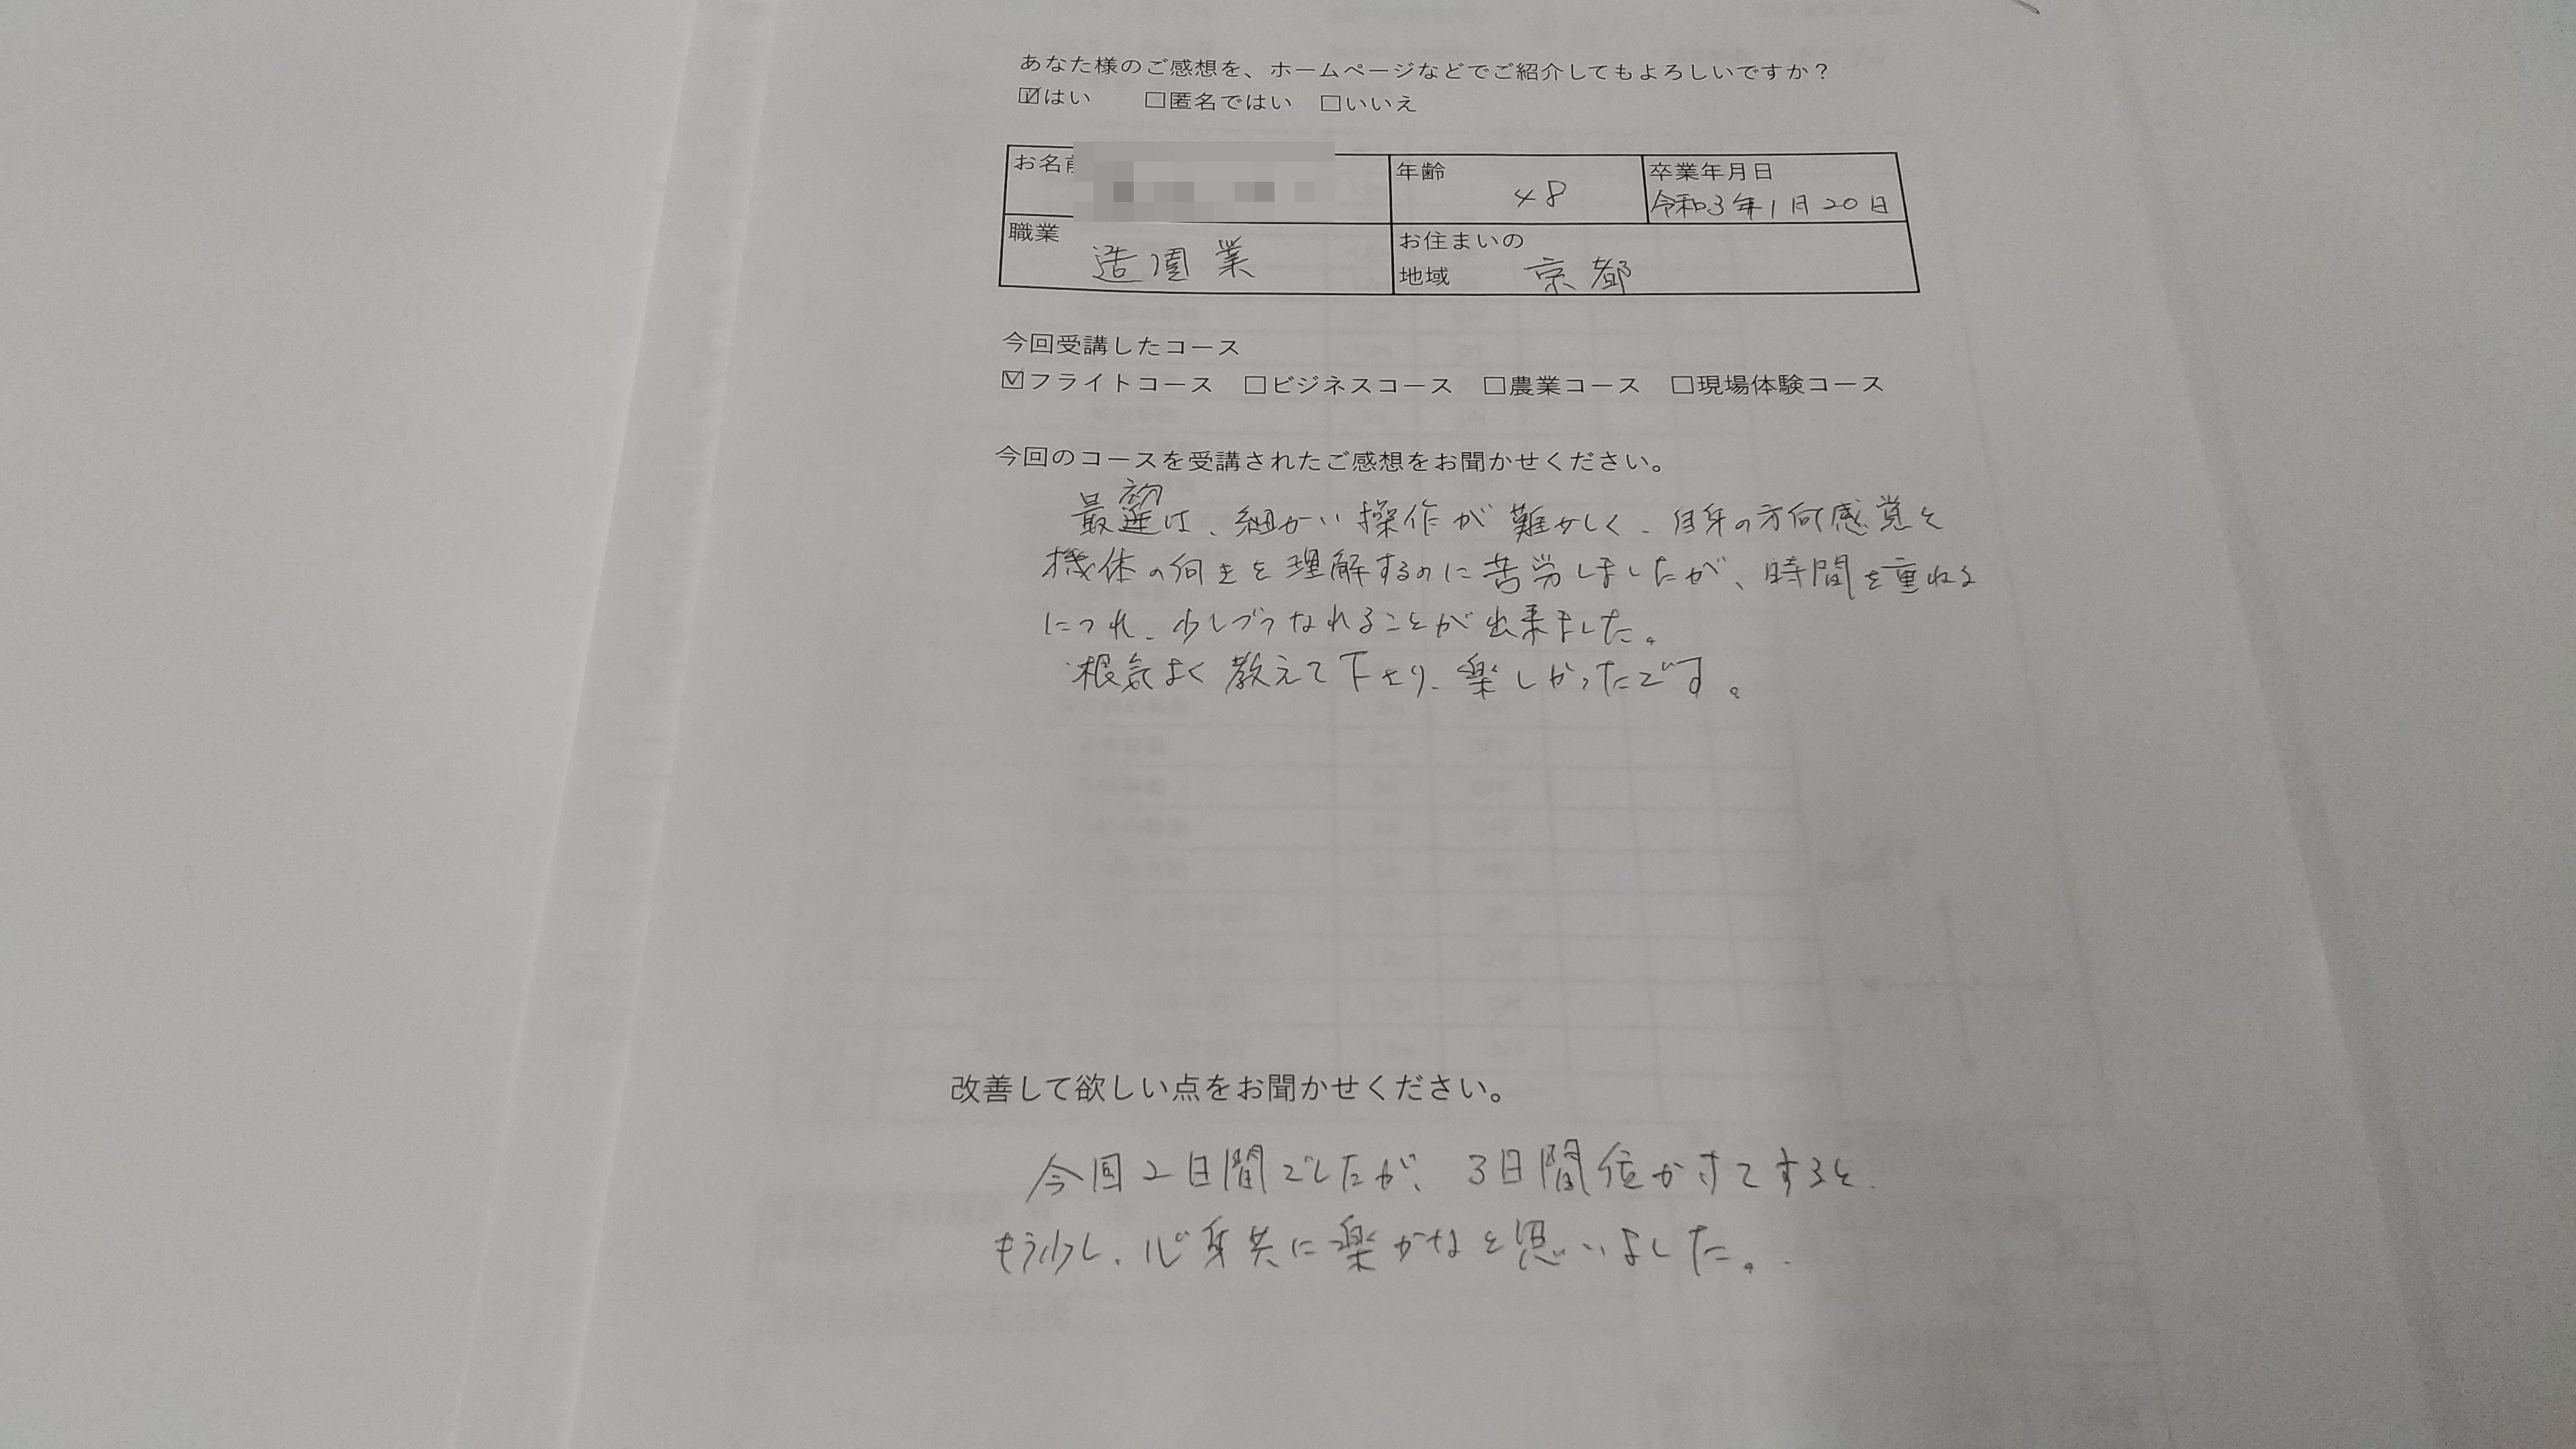 あなた様のご感想を、ホームページなどでご紹介してもよろしいですか？
☑はい　□匿名ではい　□いいえ
お名前
年齢 48
卒業年月日 令和3年1月20日
職業 造園業
お住まいの地域 京都
今回受講したコース
☑フライトコース　□ビジネスコース　□農業コース　□現場体験コース
今回のコースを受講されたご感想をお聞かせください。
最初は、細かい操作が難かしく、自身の方向感覚と
機体の向きを理解するのに苦労しましたが、時間を重ねる
につれ、少しづつなれることが出来ました。
根気よく教えて下さり、楽しかったです。
改善して欲しい点をお聞かせください。
今回2日間でしたが、3日間位かけてすると、
もう少し、心身共に楽かなと思いました。